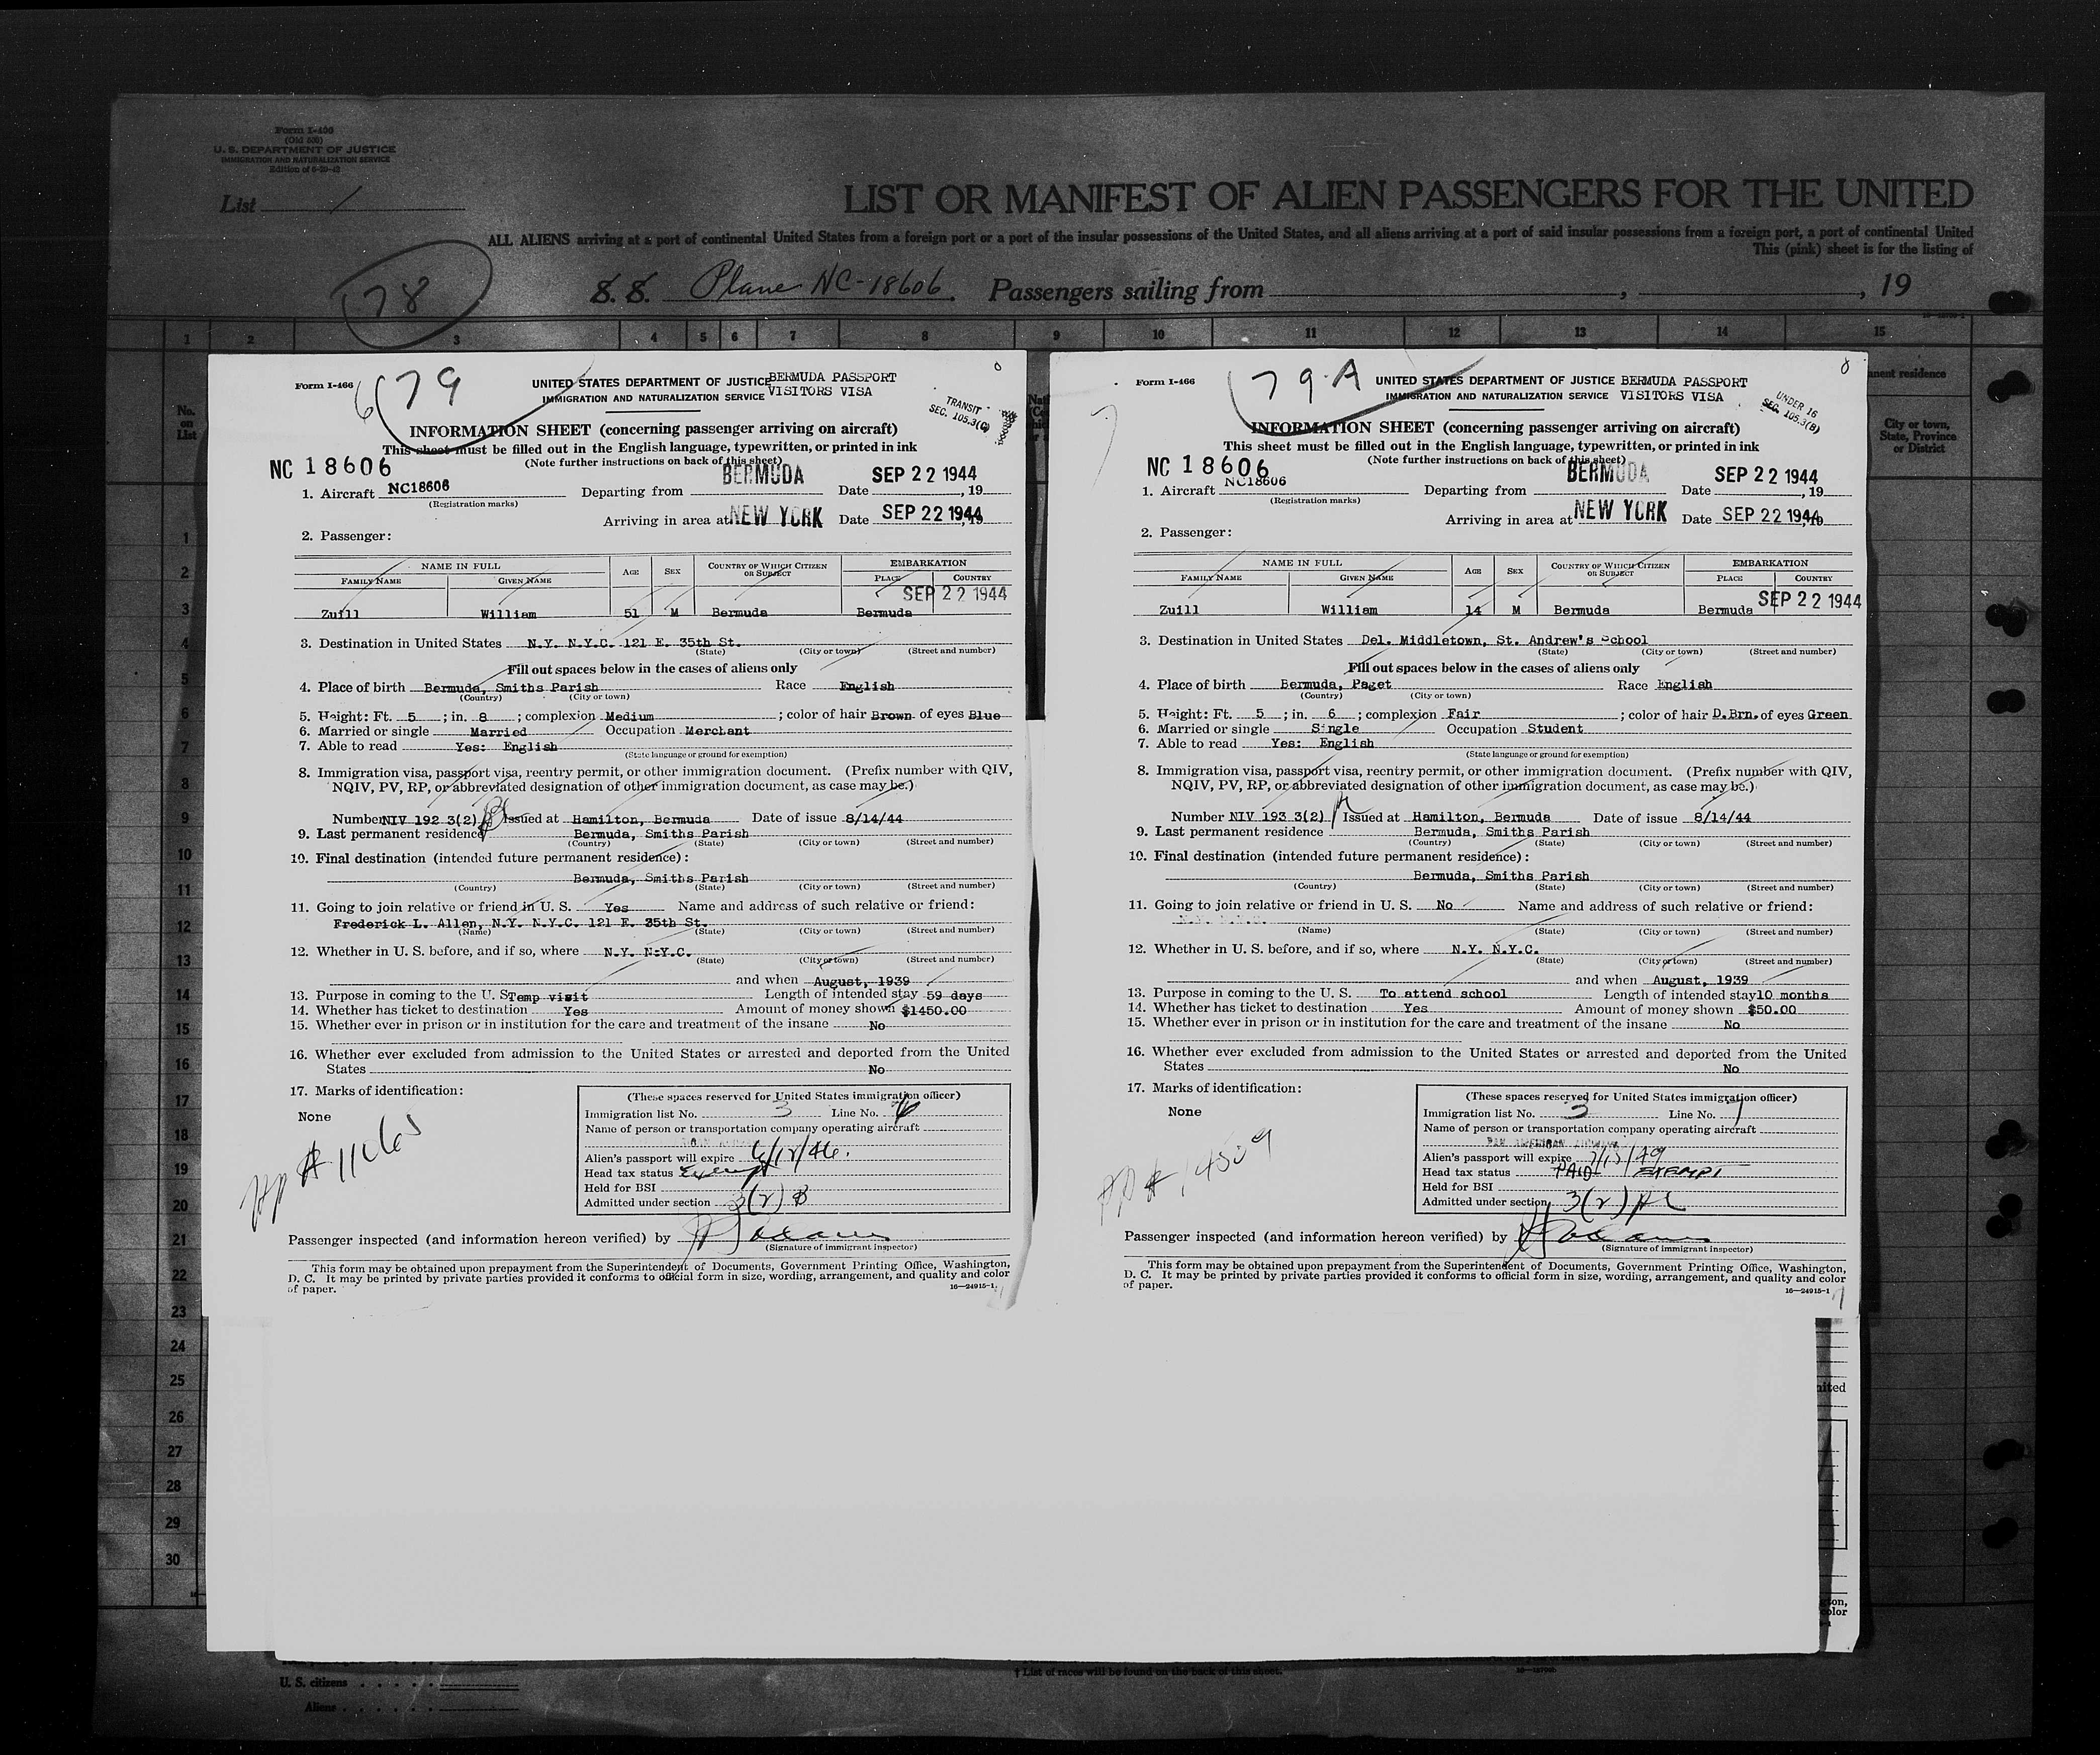 Form I-466
(Old 500)
U. S. DEPARTMENT OF JUSTICE
IMMIGRATION AND NATURALIZATION SERVICE
List /
LIST OR MANIFEST OF ALIEN PASSENGERS FOR THE UNITED
ALL ALIENS arriving at a port of continental United States from a foreign port or a port of the insular possessions of the United States, and all aliens arriving at a port of said insular possessions from a foreign port, a port of continental United
This (pink) sheet is for the listing of
78
S. S. Plane NC-18606. Passengers sailing from , , 19
1 2 3 4 5 6 7 8 9 10 11 12 13 14 15
No. on List
anent residence
City or town, State, Province or District
1
2
3
4
5
6
7
8
9
10
11
12
13
14
15
16
17
18
19
20
21
22
23
24
25
26
27
28
29
30
Form I-466
6 79
UNITED STATES DEPARTMENT OF JUSTICE BERMUDA PASSPORT
IMMIGRATION AND NATURALIZATION SERVICE VISITORS VISA
TRANSIT
SEC. 105.3(C)
INFORMATION SHEET (concerning passenger arriving on aircraft)
This sheet must be filled out in the English language, typewritten, or printed in ink
(Note further instructions on back of this sheet)
NC 18606 BERMUDA SEP 22 1944
1. Aircraft NC18606 Departing from Date , 19
(Registration marks)
Arriving in area at NEW YORK Date SEP 22 1944 , 19
2. Passenger:
NAME IN FULL AGE SEX COUNTRY OF WHICH CITIZEN OR SUBJECT EMBARKATION
FAMILY NAME GIVEN NAME PLACE COUNTRY
SEP 22 1944
Zuill William 51 M Bermuda Bermuda
3. Destination in United States N.Y. N.Y.C. 121 E. 35th St.
(State) (City or town) (Street and number)
Fill out spaces below in the cases of aliens only
4. Place of birth Bermuda, Smiths Parish Race English
(Country) (City or town)
5. Height: Ft. 5 ; in. 8 ; complexion Medium ; color of hair Brown of eyes Blue
6. Married or single Married Occupation Merchant
7. Able to read Yes: English
(State language or ground for exemption)
8. Immigration visa, passport visa, reentry permit, or other immigration document. (Prefix number with QIV,
NQIV, PV, RP, or abbreviated designation of other immigration document, as case may be.)
Number NIV 192 3(2) Issued at Hamilton, Bermuda Date of issue 8/14/44
9. Last permanent residence Bermuda, Smiths Parish
(Country) (State) (City or town) (Street and number)
10. Final destination (intended future permanent residence):
Bermuda, Smiths Parish
(Country) (State) (City or town) (Street and number)
11. Going to join relative or friend in U. S. Yes Name and address of such relative or friend:
Frederick L. Allen, N.Y. N.Y.C. 121 E. 35th St.
(Name) (State) (City or town) (Street and number)
12. Whether in U. S. before, and if so, where N.Y. N.Y.C.
(State) (City or town) (Street and number)
and when August, 1939
13. Purpose in coming to the U. S. Temp visit Length of intended stay 59 days
14. Whether has ticket to destination Yes Amount of money shown $1450.00
15. Whether ever in prison or in institution for the care and treatment of the insane No
16. Whether ever excluded from admission to the United States or arrested and deported from the United
States No
17. Marks of identification:
None
(These spaces reserved for United States immigration officer)
Immigration list No. 3 Line No. 6
Name of person or transportation company operating aircraft
Alien's passport will expire 6/12/46.
Head tax status Exempt
Held for BSI
Admitted under section 3(2) B
Passenger inspected (and information hereon verified) by
(Signature of immigrant inspector)
This form may be obtained upon prepayment from the Superintendent of Documents, Government Printing Office, Washington,
D. C. It may be printed by private parties provided it conforms to official form in size, wording, arrangement, and quality and color
of paper. 16—24915-1
Form I-466
79-A
UNITED STATES DEPARTMENT OF JUSTICE BERMUDA PASSPORT
IMMIGRATION AND NATURALIZATION SERVICE VISITORS VISA
UNDER 16
SEC. 105.3(B)
INFORMATION SHEET (concerning passenger arriving on aircraft)
This sheet must be filled out in the English language, typewritten, or printed in ink
(Note further instructions on back of this sheet)
NC 18606 BERMUDA SEP 22 1944
1. Aircraft NC18606 Departing from Date , 19
(Registration marks)
Arriving in area at NEW YORK Date SEP 22 1944 , 19
2. Passenger:
NAME IN FULL AGE SEX COUNTRY OF WHICH CITIZEN OR SUBJECT EMBARKATION
FAMILY NAME GIVEN NAME PLACE COUNTRY
SEP 22 1944
Zuill William 14 M Bermuda Bermuda
3. Destination in United States Del. Middletown, St. Andrew's School
(State) (City or town) (Street and number)
Fill out spaces below in the cases of aliens only
4. Place of birth Bermuda, Paget Race English
(Country) (City or town)
5. Height: Ft. 5 ; in. 6 ; complexion Fair ; color of hair D.Brn. of eyes Green
6. Married or single Single Occupation Student
7. Able to read Yes: English
(State language or ground for exemption)
8. Immigration visa, passport visa, reentry permit, or other immigration document. (Prefix number with QIV,
NQIV, PV, RP, or abbreviated designation of other immigration document, as case may be.)
Number NIV 193 3(2) Issued at Hamilton, Bermuda Date of issue 8/14/44
9. Last permanent residence Bermuda, Smiths Parish
(Country) (State) (City or town) (Street and number)
10. Final destination (intended future permanent residence):
Bermuda, Smiths Parish
(Country) (State) (City or town) (Street and number)
11. Going to join relative or friend in U. S. No Name and address of such relative or friend:
(Name) (State) (City or town) (Street and number)
12. Whether in U. S. before, and if so, where N.Y. N.Y.C.
(State) (City or town) (Street and number)
and when August, 1939
13. Purpose in coming to the U. S. To attend school Length of intended stay 10 months
14. Whether has ticket to destination Yes Amount of money shown $50.00
15. Whether ever in prison or in institution for the care and treatment of the insane No
16. Whether ever excluded from admission to the United States or arrested and deported from the United
States No
17. Marks of identification:
None
(These spaces reserved for United States immigration officer)
Immigration list No. 3 Line No. 1
Name of person or transportation company operating aircraft
PAN AMERICAN AIRWAYS
Alien's passport will expire 7/13/49
Head tax status PAID EXEMPT
Held for BSI
Admitted under section 3(2)
Passenger inspected (and information hereon verified) by
(Signature of immigrant inspector)
This form may be obtained upon prepayment from the Superintendent of Documents, Government Printing Office, Washington,
D. C. It may be printed by private parties provided it conforms to official form in size, wording, arrangement, and quality and color
of paper. 16—24915-1
U. S. citizens
Aliens
† List of races will be found on the back of this sheet.